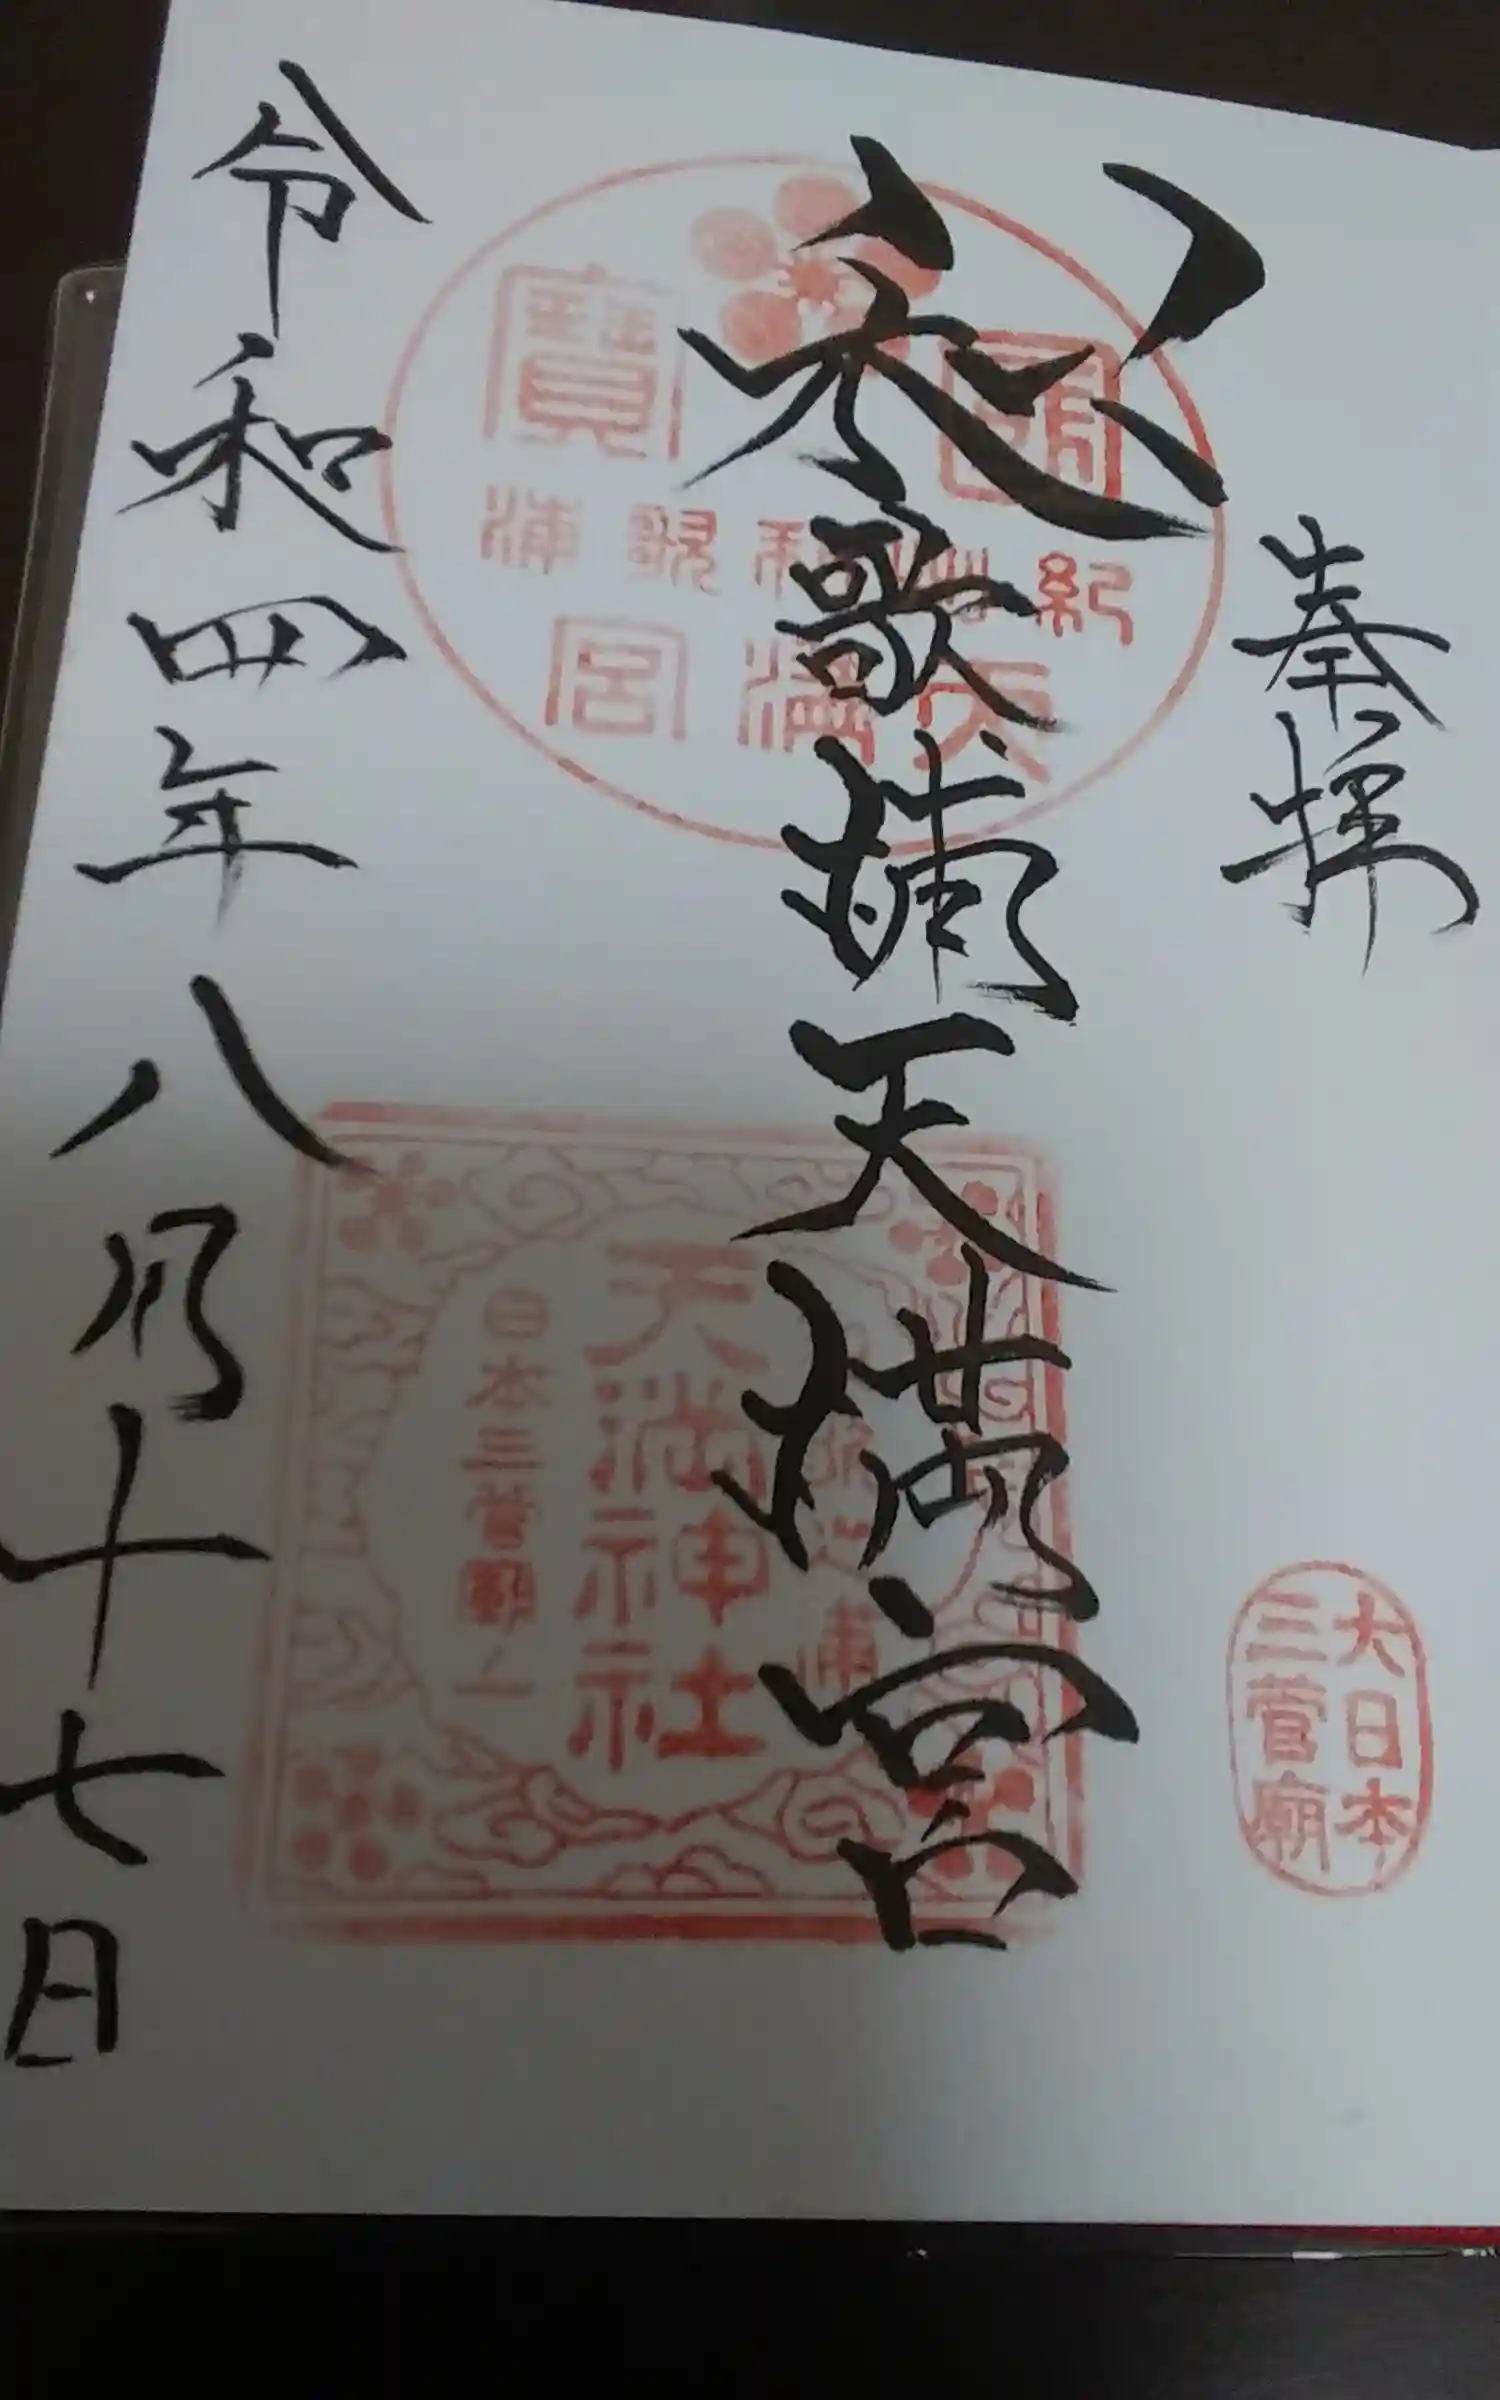 奉拝
大日本
三菅廟
和歌浦天満宮
紀州和歌浦
天満宮
天満神社
日本三菅廟一
令和四年八月十七日